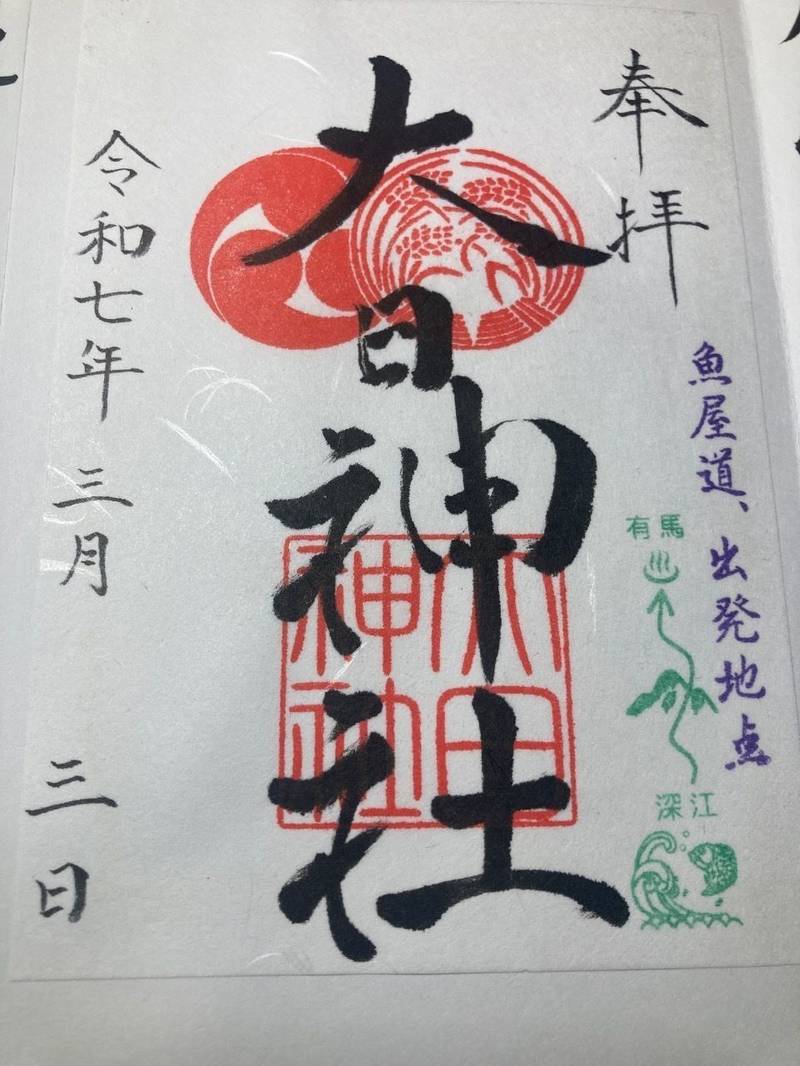 奉拝
魚屋道、出発地点
有馬
深江
大日神社
大日神社
令和七年三月三日